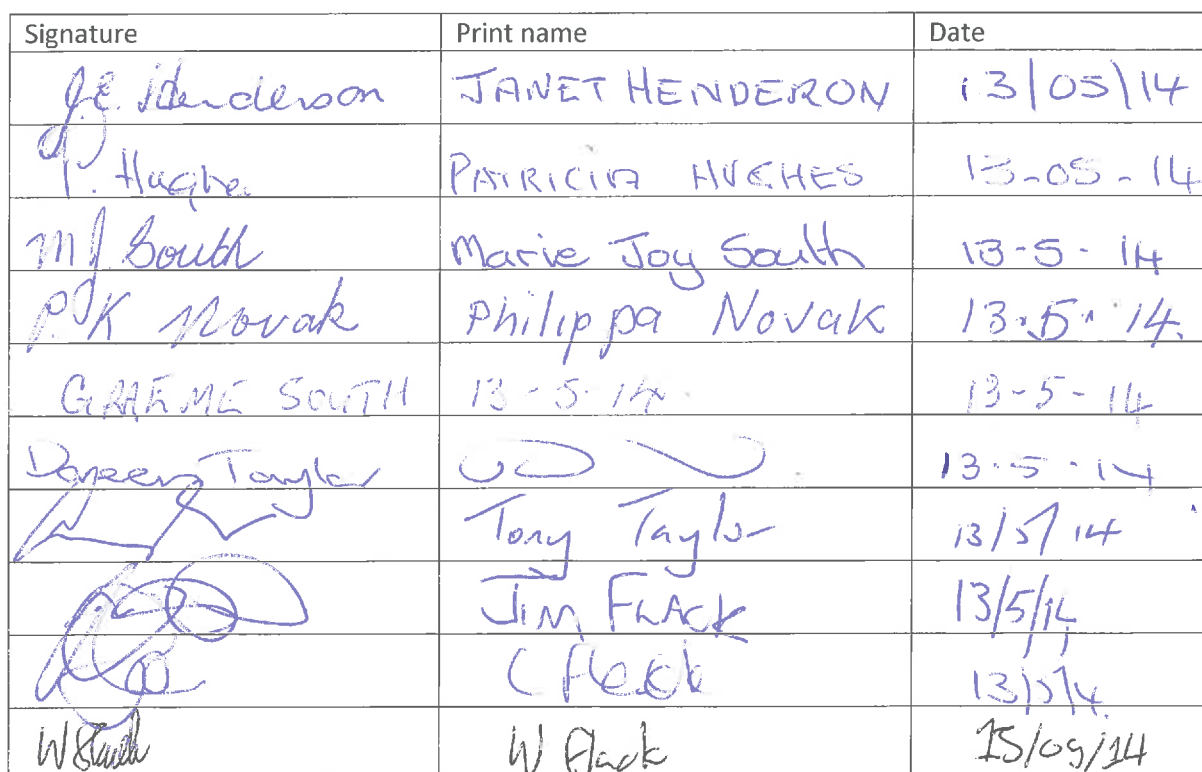 Signature Print name Date
J.E. Henderson JANET HENDERON 13/05/14
P. Hughes PATRICIA HUGHES 13-05-14
M J South Marie Joy South 13-5-14
P. K Novak Philippa Novak 13.5.14.
GRAEME SOUTH 13-5-14. 13-5-14
Doreen Taylor 13-5-14
Tony Taylor 13/5/14
JIM FLACK 13/5/14
C Flack 13/5/14.
W Flack W Flack 15/09/14